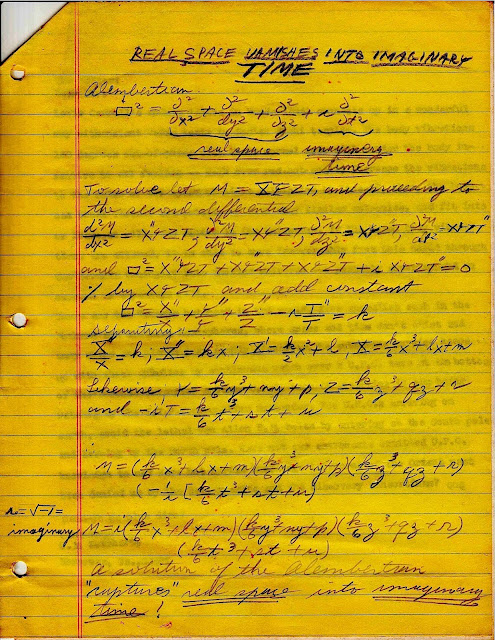 REAL SPACE VANISHES INTO IMAGINARY
TIME
Alembertian
□² = ∂²/∂x² + ∂²/∂y² + ∂²/∂z² + i ∂²/∂t²
real space imaginery
time
To solve let M = XYZT, and proceeding to
the second differential
d²M/dx² = X"YZT, ∂²M/dy² = XY"ZT, ∂²M/dz² = XYZ"T, ∂²M/dt² = XYZT"
and □² = X"YZT + XY"ZT + XYZ"T + i XYZT" = 0
% by XYZT and add constant
□² = X"/X + Y"/Y + Z"/Z - i T"/T = k
separating:
X"/X = k; X" = kx; X' = k/2 x² + l, X = k/6 x³ + lx + m
Likewise Y = k/6 y³ + ny + p; Z = k/6 z³ + qz + r
and -iT = k/6 t³ + st + u
∴
M = (k/6 x³ + lx + m)(k/6 y³ + ny + p)(k/6 z³ + qz + r)
(-1/i [k/6 t³ + st + u)
i = √-1 =
imaginary
M = i(k/6 x³ + lx + m)(k/6 y³ + ny + p)(k/6 z³ + qz + r)
(k/6 t³ + st + u)
a solution of the Alembertian
"ruptures" real space into imaginary
time!